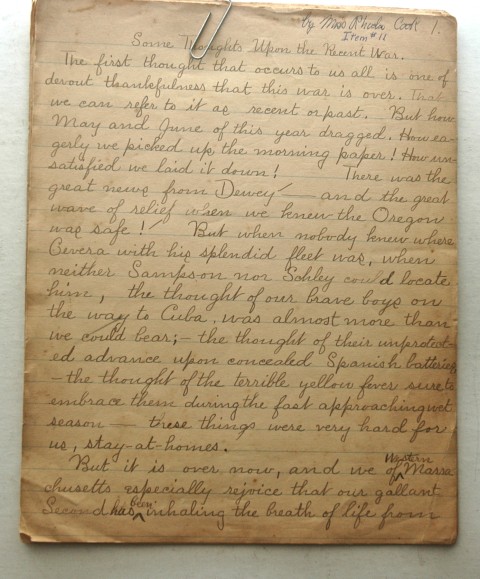 by Miss Rhoda Cook 1.
Item #11
Some Thoughts Upon the Recent War.
The first thought that occurs to us all is one of
devout thankfulness that this war is over. That
we can refer to it as recent or past. But how
May and June of this year dragged. How ea-
gerly we picked up the morning paper! How un-
satisfied we laid it down! There was the
great news from Dewey — and the great
wave of relief when we knew the Oregon
was safe! But when nobody knew where
Cevera with his splendid fleet was, when
neither Sampson nor Schley could locate
him, the thought of our brave boys on
the way to Cuba, was almost more than
we could bear; – the thought of their unprotect-
ed advance upon concealed Spanish batteries,
– the thought of the terrible yellow fever sure to
embrace them during the fast approaching wet
season — these things were very hard for
us, stay-at-homes.
But it is over now, and we of Western Massa
chusetts especially rejoice that our gallant
Second has been inhaling the breath of life from